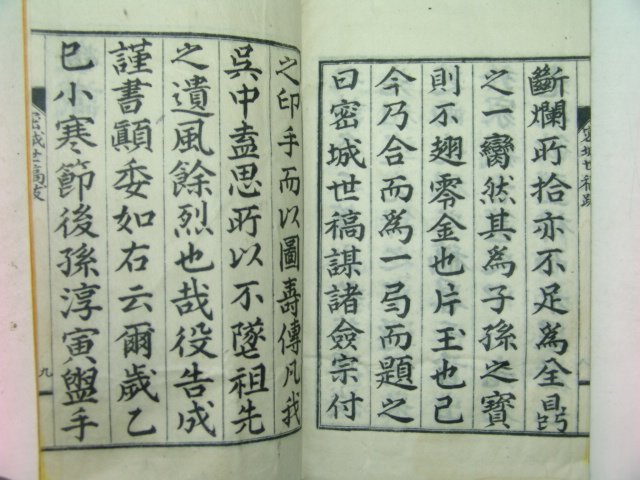 斷爛所拾亦不足爲全鼎
之一臠然其爲子孫之寶
則不翅零金也片玉也已
今乃合而爲一局而題之
曰密城世稿謀諸僉宗付
密城世稿跋
之印手而以圖壽傳凡我
吳中盍思所以不墜祖先
之遺風餘烈也哉役告成
謹書顚委如右云爾歲乙
巳小寒節後孫淳寅盥手
密城世稿跋
九